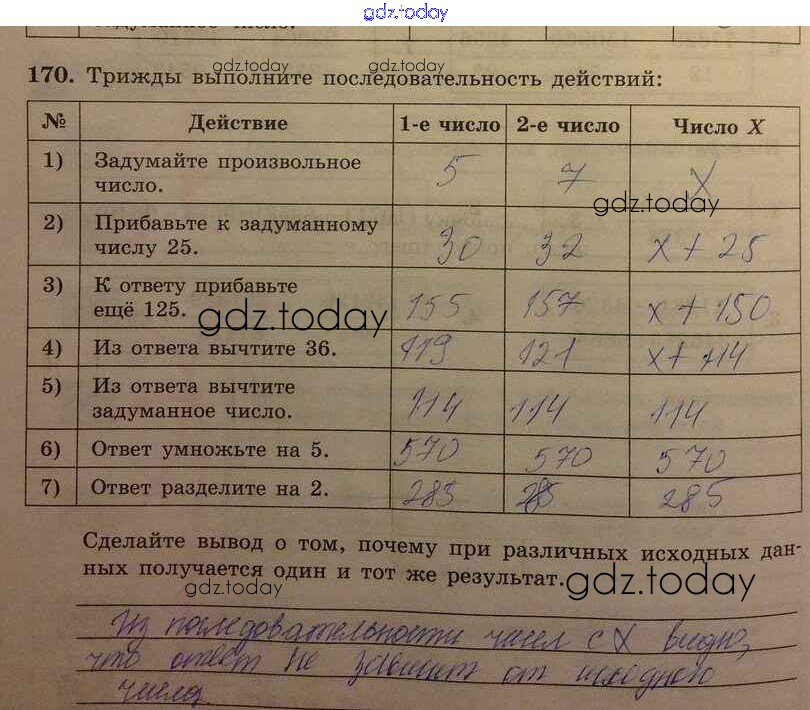 gdz.today
задуманное число.
gdz.today gdz.today
170. Трижды выполните последовательность действий:
№ Действие 1-е число 2-е число Число X
1) Задумайте произвольное
число. 5 7 X
gdz.today
2) Прибавьте к задуманному
числу 25. 30 32 x + 25
3) К ответу прибавьте
ещё 125. 155 157 x + 150
gdz.today
4) Из ответа вычтите 36. 119 121 x + 114
5) Из ответа вычтите
задуманное число. 114 114 114
6) Ответ умножьте на 5. 570 570 570
7) Ответ разделите на 2. 285 285 285
Сделайте вывод о том, почему при различных исходных дан-
ных получается один и тот же результат.
gdz.today gdz.today
Из последовательности чисел с X видно,
что ответ не зависит от исходного
числа